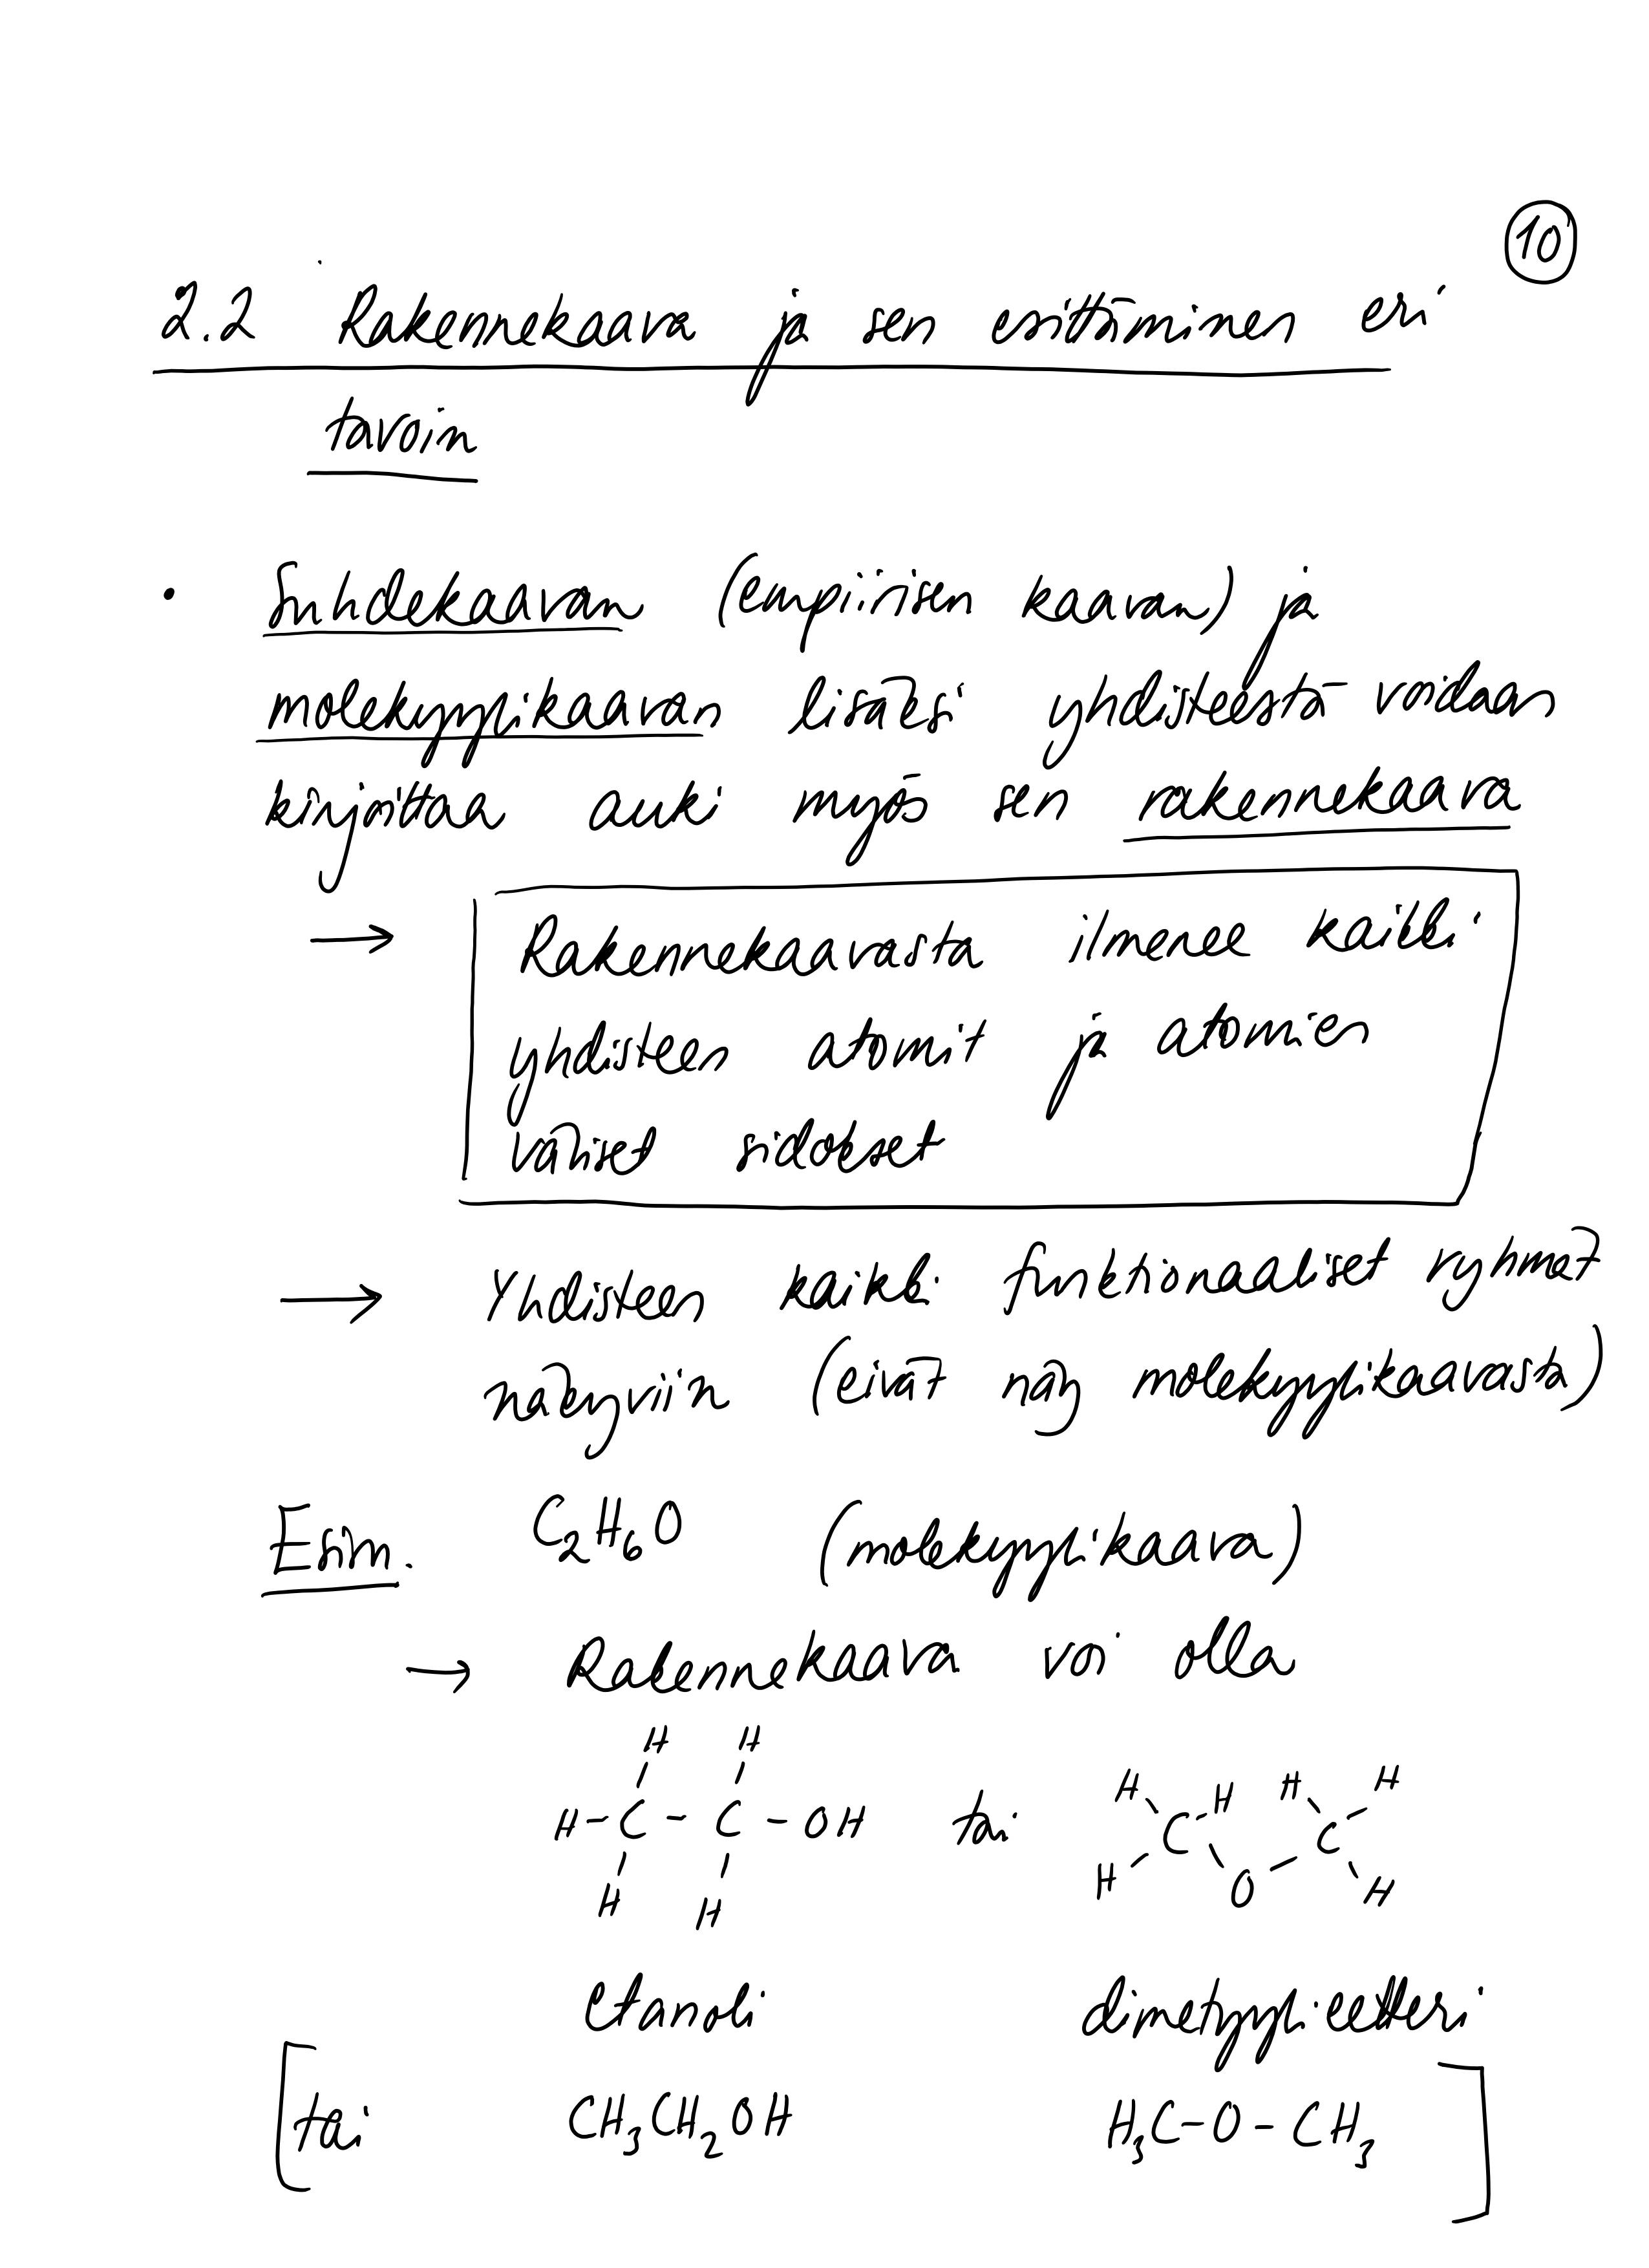 10
2.2 Rakennekaava ja sen esittäminen eri
tavoin
• Suhdekaavan (empiirisen kaavan) ja
molekyylikaavan lisäksi yhdisteestä voidaan
kirjoittaa auki myös sen rakennekaava
→ Rakennekaavasta ilmenee kaikki
yhdisteen atomit ja atomien
väliset sidokset
→ Yhdisteen kaikki funktionaaliset ryhmät
näkyviin (eivät näy molekyylikaavasta)
Esim. C₂H₆O (molekyylikaava)
→ Rakennekaava voi olla
H H
H H H H
H-C-C-OH tai C C
H O H
H H
etanoli dimetyylieetteri
[tai CH₃CH₂OH H₃C-O-CH₃]